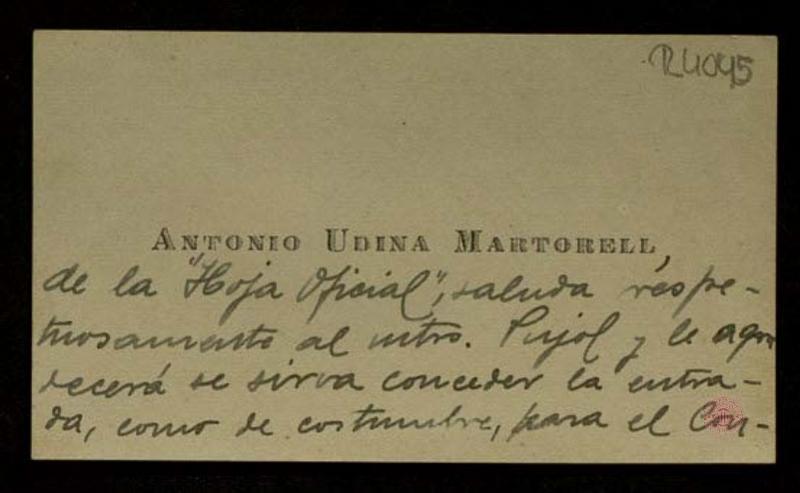 R4045
ANTONIO UDINA MARTORELL,
de la "Hoja Oficial", saluda respe-
tuosamente al mtro. Pujol y le agra
decerá se sirva conceder la entra-
da, como de costumbre, para el Con-